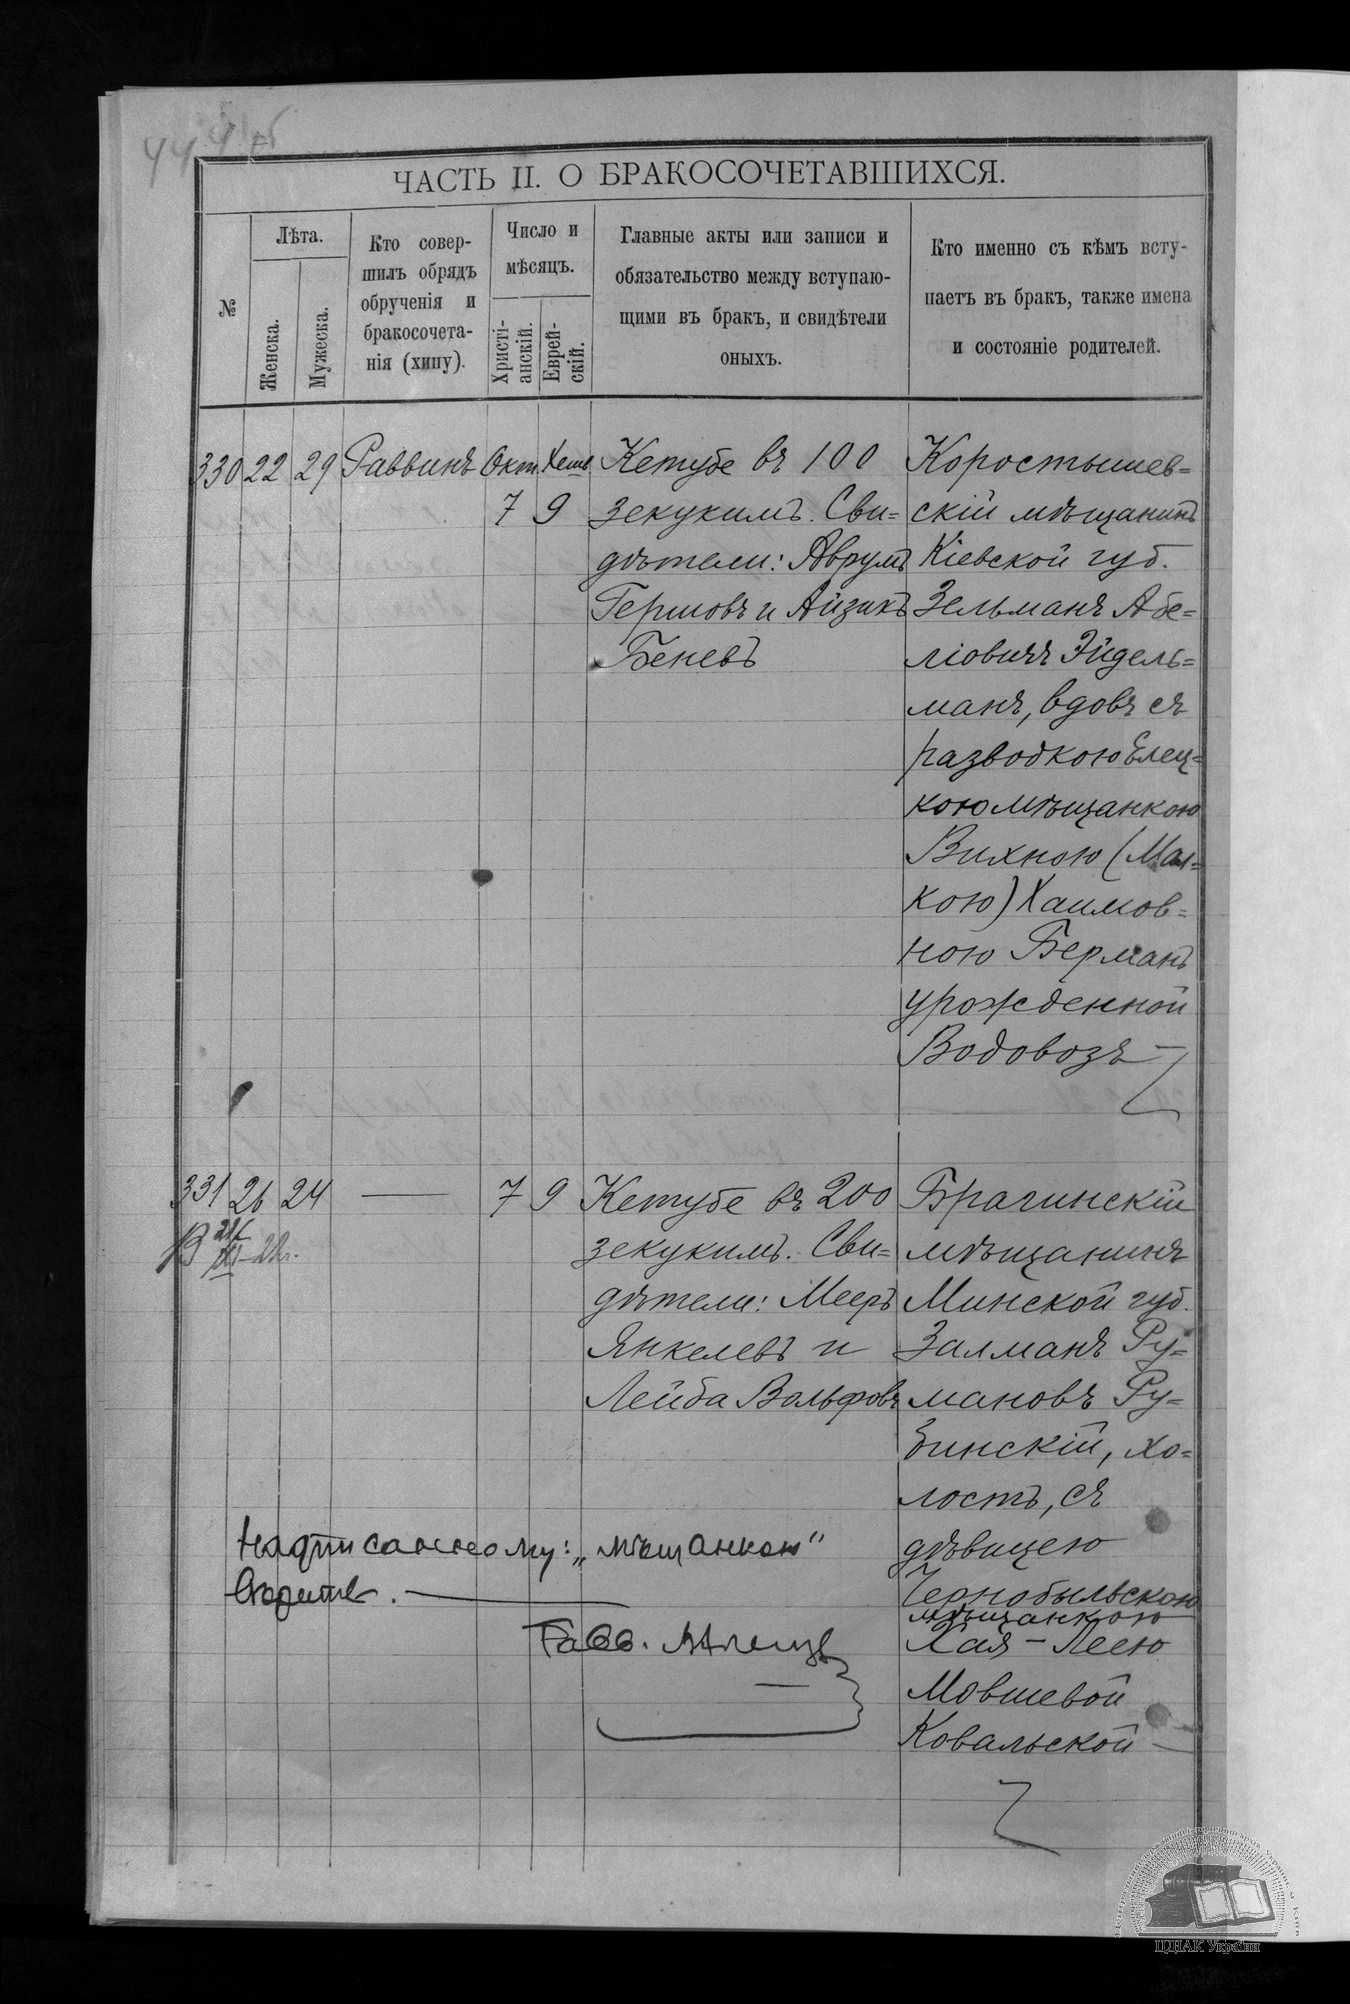 ЧАСТЬ II. О БРАКОСОЧЕТАВШИХСЯ.
№
Лѣта.
Женска.
Мужеска.
Кто совер-
шилъ обрядъ
обрученія и
бракосочета-
нія (хипу).
Число и
мѣсяцъ.
Христі-
анскій.
Еврей-
скій.
Главные акты или записи и
обязательство между вступаю-
щими въ бракъ, и свидѣтели
оныхъ.
Кто именно съ кѣмъ всту-
паетъ въ бракъ, также имена
и состояніе родителей.
330 22 29 Раввинъ Окт. Хешв.
7 9
Кетубе въ 100
зекукимъ. Сви=
дѣтели: Аврумъ
Гершовъ и Айзикъ
Беневъ
Коростышев=
скій мѣщанинъ
Кіевской губ.
Зельманъ Абе=
ліовичъ Эйдель=
манъ, вдовъ съ
разводкою Елец=
кою мѣщанкою
Вихною (Мал=
кою) Хаимов=
ною Берманъ
урожденной
Водовозъ —
331 26 24 — 7 9
Кетубе въ 200
зекукимъ. Сви=
дѣтели: Мееръ
Янкелевъ и
Лейба Вольфовъ
Брагинскій
мѣщанинъ
Минской губ.
Залманъ Ру=
мановъ Ру=
бинскій, хо=
лостъ, съ
дѣвицею
Чернобыльскою
мѣщанкою
Хая-Леею
Мовшевой
Ковальской —
Надписанному: „мѣщанкою"
вѣрить. —
Равв.
ЦДІАК України